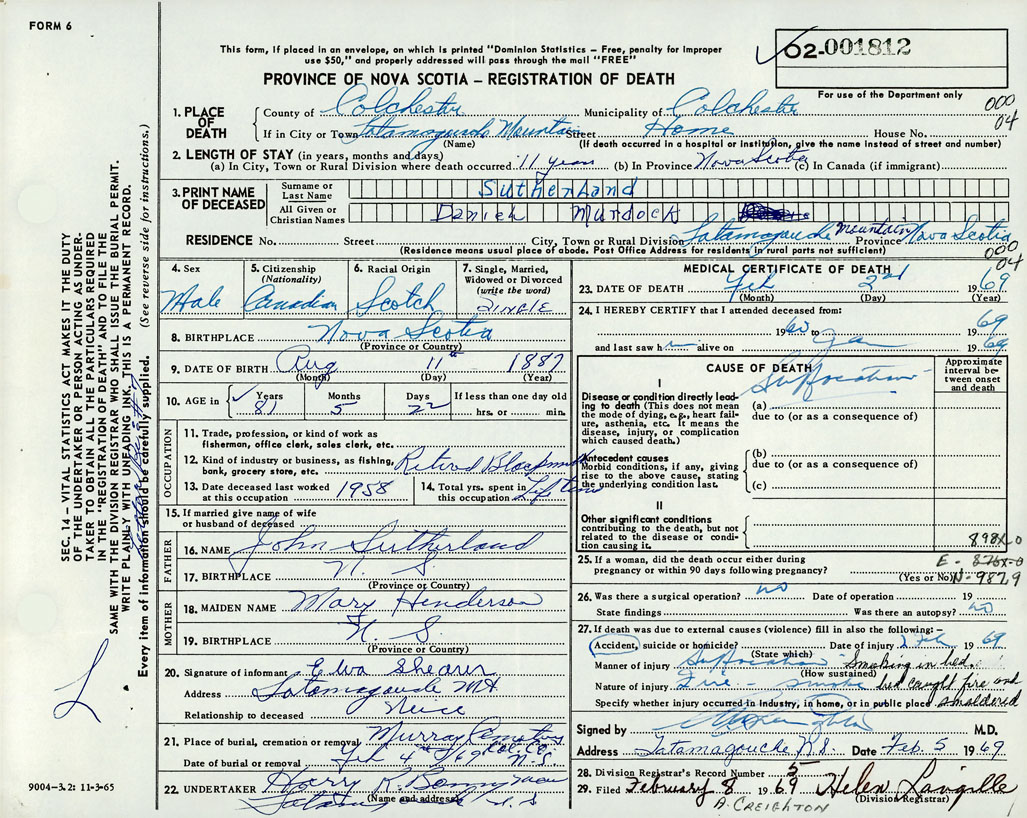 FORM 6
This form, if placed in an envelope, on which is printed "Dominion Statistics – Free, penalty for improper
use $50," and properly addressed will pass through the mail "FREE"
PROVINCE OF NOVA SCOTIA – REGISTRATION OF DEATH
02-001812
For use of the Department only
000
04
1. PLACE OF DEATH
County of Colchester Municipality of Colchester
If in City or Town Tatamagouche Mountain Street Home House No.
(Name) (If death occurred in a hospital or Institution, give the name instead of street and number)
2. LENGTH OF STAY (in years, months and days)
(a) In City, Town or Rural Division where death occurred 11 years (b) In Province Nova Scotia (c) In Canada (if immigrant)
3. PRINT NAME OF DECEASED
Surname or Last Name Sutherland
All Given or Christian Names Daniel Murdock
RESIDENCE No. Street City, Town or Rural Division Tatamagouche Mountain Province Nova Scotia
(Residence means usual place of abode. Post Office Address for residents in rural parts not sufficient)
000
04
4. Sex Male
5. Citizenship (Nationality) Canadian
6. Racial Origin Scotch
7. Single, Married, Widowed or Divorced (write the word) SINGLE
8. BIRTHPLACE Nova Scotia
(Province or Country)
9. DATE OF BIRTH Aug 11th 1887
(Month) (Day) (Year)
10. AGE in Years 81 Months 5 Days 22 If less than one day old hrs. or min.
OCCUPATION
11. Trade, profession, or kind of work as
fisherman, office clerk, sales clerk, etc.
12. Kind of industry or business, as fishing,
bank, grocery store, etc. Retired Blacksmith
13. Date deceased last worked
at this occupation 1958
14. Total yrs. spent in
this occupation Life time
15. If married give name of wife
or husband of deceased
FATHER
16. NAME John Sutherland
17. BIRTHPLACE N. S.
(Province or Country)
MOTHER
18. MAIDEN NAME Mary Henderson
19. BIRTHPLACE N. S.
(Province or Country)
20. Signature of informant Elva Shearer
Address Tatamagouche Mt
Relationship to deceased Niece
21. Place of burial, cremation or removal Murray Cemetery Col. Co.
Date of burial or removal Feb 4th /69 N. S.
22. UNDERTAKER Harry R.
(Name and address) N. S.
9004-3.2: 11-3-65
MEDICAL CERTIFICATE OF DEATH
23. DATE OF DEATH Feb 2nd 1969
(Month) (Day) (Year)
24. I HEREBY CERTIFY that I attended deceased from:
1960 to 69
and last saw him alive on Jan 1969
CAUSE OF DEATH
Approximate interval between onset and death
I
Disease or condition directly leading to death (This does not mean the mode of dying, e.g., heart failure, asthenia, etc. It means the disease, injury, or complication which caused death.)
Suffocation
(a)
due to (or as a consequence of)
Antecedent causes
Morbid conditions, if any, giving rise to the above cause, stating the underlying condition last.
(b)
due to (or as a consequence of)
(c)
II
Other significant conditions
contributing to the death, but not related to the disease or condition causing it.
898X-0
E - 876X-0
N-987.9
25. If a woman, did the death occur either during
pregnancy or within 90 days following pregnancy?
(Yes or No)
26. Was there a surgical operation? no Date of operation 19
State findings Was there an autopsy? no
27. If death was due to external causes (violence) fill in also the following:–
Accident, suicide or homicide? Date of injury 2 Feb 1969
(State which)
Manner of injury Suffocation Smoking in bed.
(How sustained)
Nature of injury Fire smoke bed caught fire and
Specify whether injury occurred in Industry, in home, or in public place smoldered
Signed by M.D.
Address Tatamagouche N.S. Date Feb. 5 1969
28. Division Registrar's Record Number 5
29. Filed February 8 1969 Helen Langille
(Division Registrar)
A. CREIGHTON
SEC. 14 – VITAL STATISTICS ACT MAKES IT THE DUTY
OF THE UNDERTAKER OR PERSON ACTING AS UNDER-
TAKER TO OBTAIN ALL THE PARTICULARS REQUIRED
IN THE "REGISTRATION OF DEATH" AND TO FILE THE
SAME WITH THE DIVISION REGISTRAR WHO SHALL ISSUE THE BURIAL PERMIT.
WRITE PLAINLY WITH UNFADING INK. THIS IS A PERMANENT RECORD.
Every item of information should be carefully supplied. (See reverse side for instructions.)